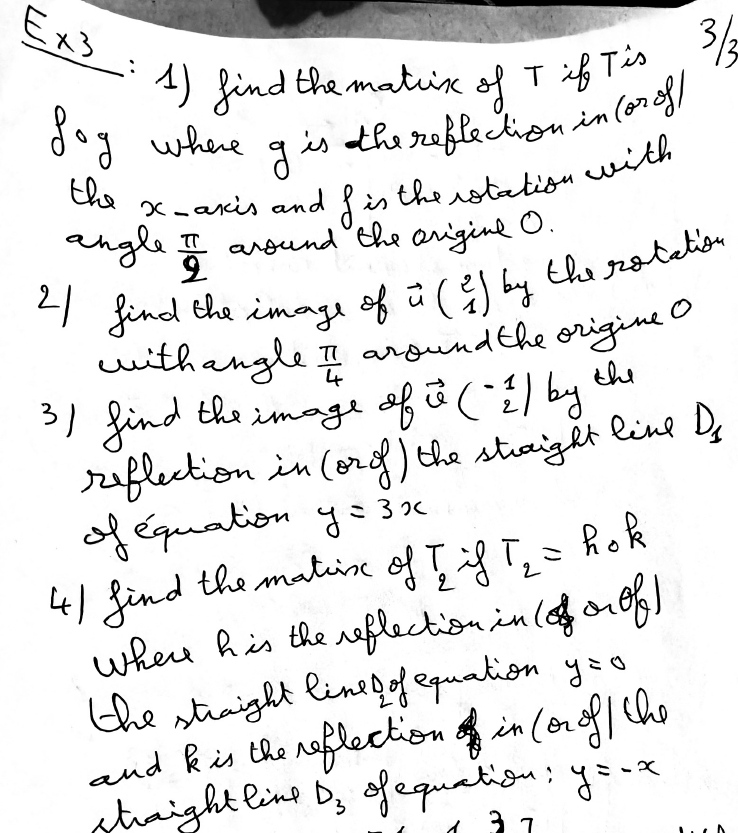 Ex3 : 1) find the matrix of T if T is 3/3
fog where g is the reflection in (or of)
the x-axis and f is the rotation with
angle π/2 around the origine O.
2) find the image of u⃗ (2 1) by the rotation
with angle π/4 around the origine O
3) find the image of (-1 2) by the
reflection in (or of) the straight line D1
of équation y = 3x
4) find the matrix of T2 if T2 = hok
where h is the reflection in (or of)
the straight line D2 of equation y=0
and k is the reflection in (or of) the
straight line D3 of equation: y=-x